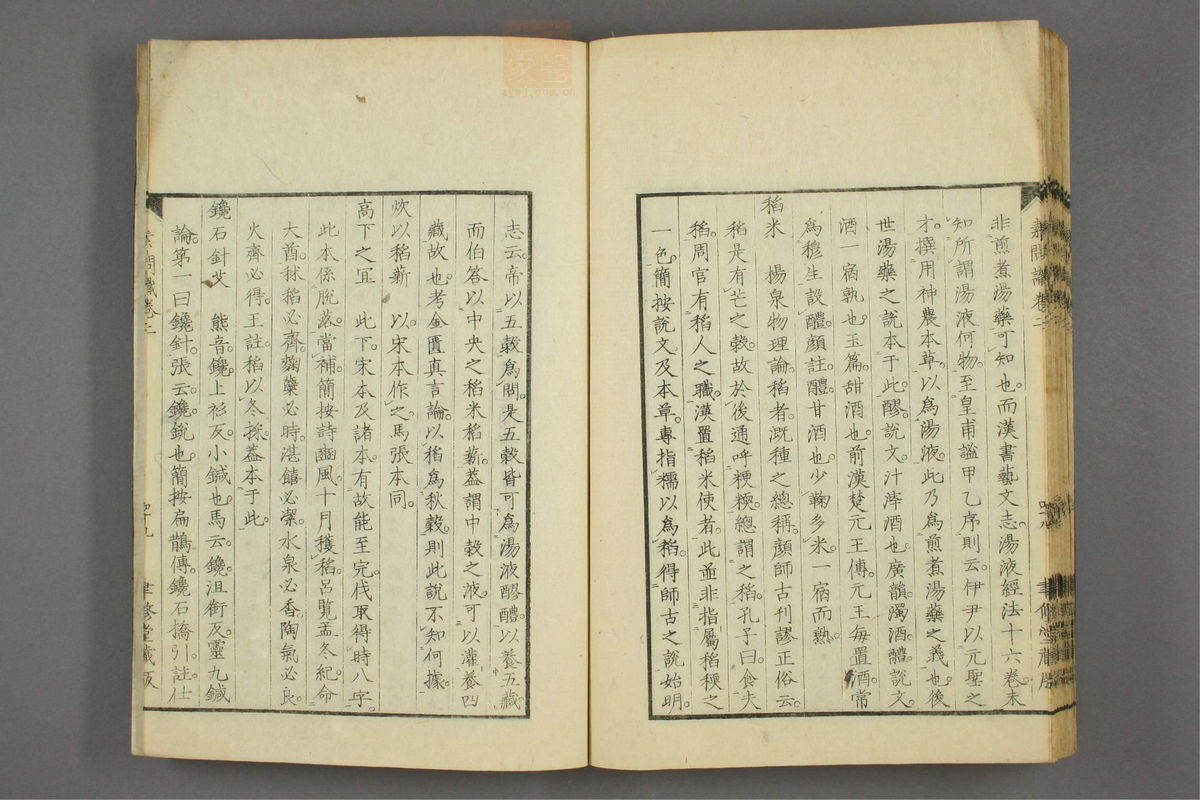 非煎煮湯藥可知也。而漢書藝文志。湯液經法十六卷。未
知所謂湯液何物。至皇甫謐甲乙序則云。伊尹以元聖之
才。撰用神農本草。以爲湯液。此乃爲煎煮湯藥之義也。後
世湯藥之說本于此。醪。說文。汁滓酒也。廣韻。濁酒。醴。說文。
酒一宿孰也。玉篇。甜酒也。前漢楚元王傳。元王每置酒。常
爲穆生設醴。顏註。醴甘酒也。少麴多米。一宿而熟。
稻米 楊泉物理論。稻者。溉種之總稱。顏師古刊謬正俗云。
稻是有芒之穀。故於後通呼粳糯。總謂之稻。孔子曰。食夫
稻。周官有稻人之職。漢置稻米使者。此並非指屬稻稬之
一色。簡按說文及本草。專指糯以爲稻。得師古之說始明。
志云。帝以五穀爲問。是五穀皆可爲湯液醪醴。以養五藏。
而伯答以中央之稻米稻薪。蓋謂中穀之液。可以灌養四
藏故也。考金匱真言論。以稻爲秋穀。則此說不知何據。
炊以稻薪 以。宋本作之。馬張本同。
高下之冝 此下。宋本及諸本。有故能至完伐取得時八字。
此本係脫落。當補。簡按詩豳風。十月穫稻。呂覽孟冬紀。命
大酋。秫稻必齊。麴糵必時。湛饎必潔。水泉必香。陶氣必良。
火齊必得。王註。稻以冬採。蓋本于此。
鑱石針艾 熊音。鑱。上衫反。小鍼也。馬云。鑱。沮銜反。靈九鍼
論。第一曰鑱針。張云。鑱。銳也。簡按扁鵲傳。鑱石撟引。註。仕
素問識卷二
四十九
聿修堂藏版